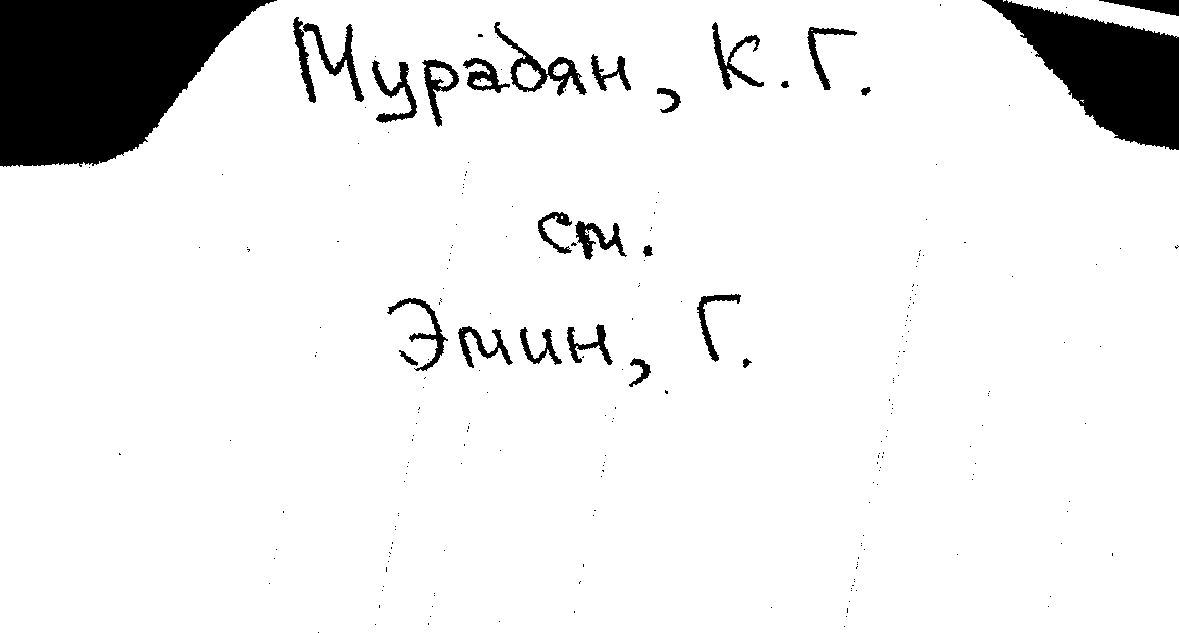 Мурадян, К. Г.
см.
Эмин, Г.